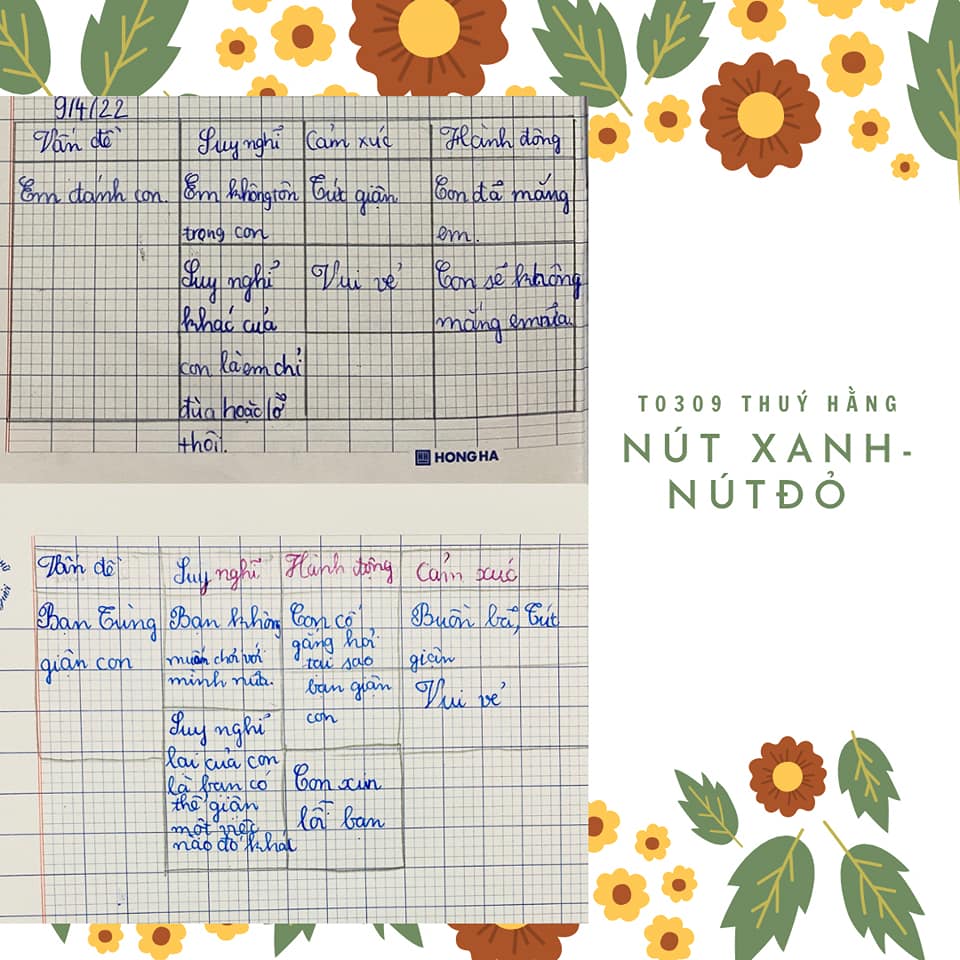 9/4/22
Vấn đề Suy nghĩ Cảm xúc Hành động
Em đánh con. Em không tôn Tức giận Con đã mắng
trọng con em.
Suy nghĩ Vui vẻ Con sẽ không
khác của mắng em nữa.
con là em chỉ
đùa hoặc lỡ
thôi.
HONG HA
T0309 THUÝ HẰNG
NÚT XANH-
NÚTĐỎ
Vấn đề Suy nghĩ Hành động Cảm xúc
Bạn Tùng Bạn không Con cố Buồn bã, Tức
giận con muốn chơi với gắng hỏi giận
mình nữa. tại sao Vui vẻ
bạn giận
con
Suy nghĩ
lại của con
là bạn có Con xin
thể giận lỗi bạn
một việc
nào đó khác